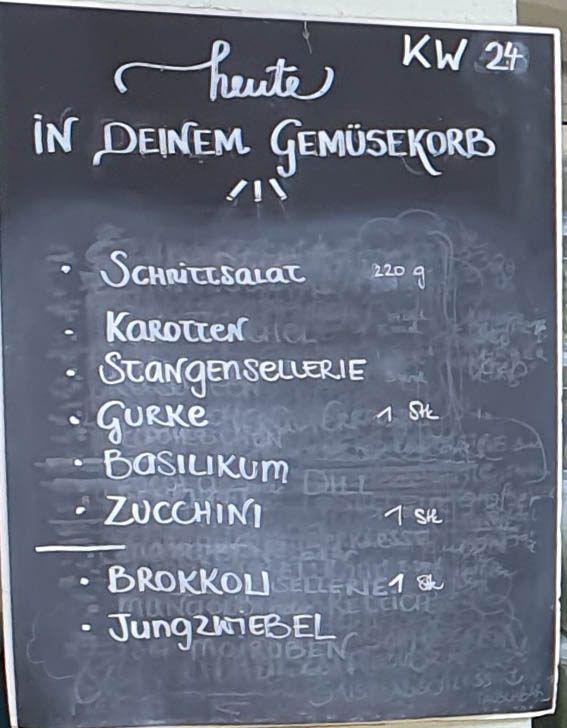 KW 24
heute
IN DEINEM GEMÜSEKORB
• SCHNITTSALAT 220 g
• KAROTTEN
• STANGENSELLERIE
• GURKE 1 Stk
• BASILIKUM
DILL
• ZUCCHINI 1 Stk
• BROKKOLI 1 Stk
• JUNGZWIEBEL